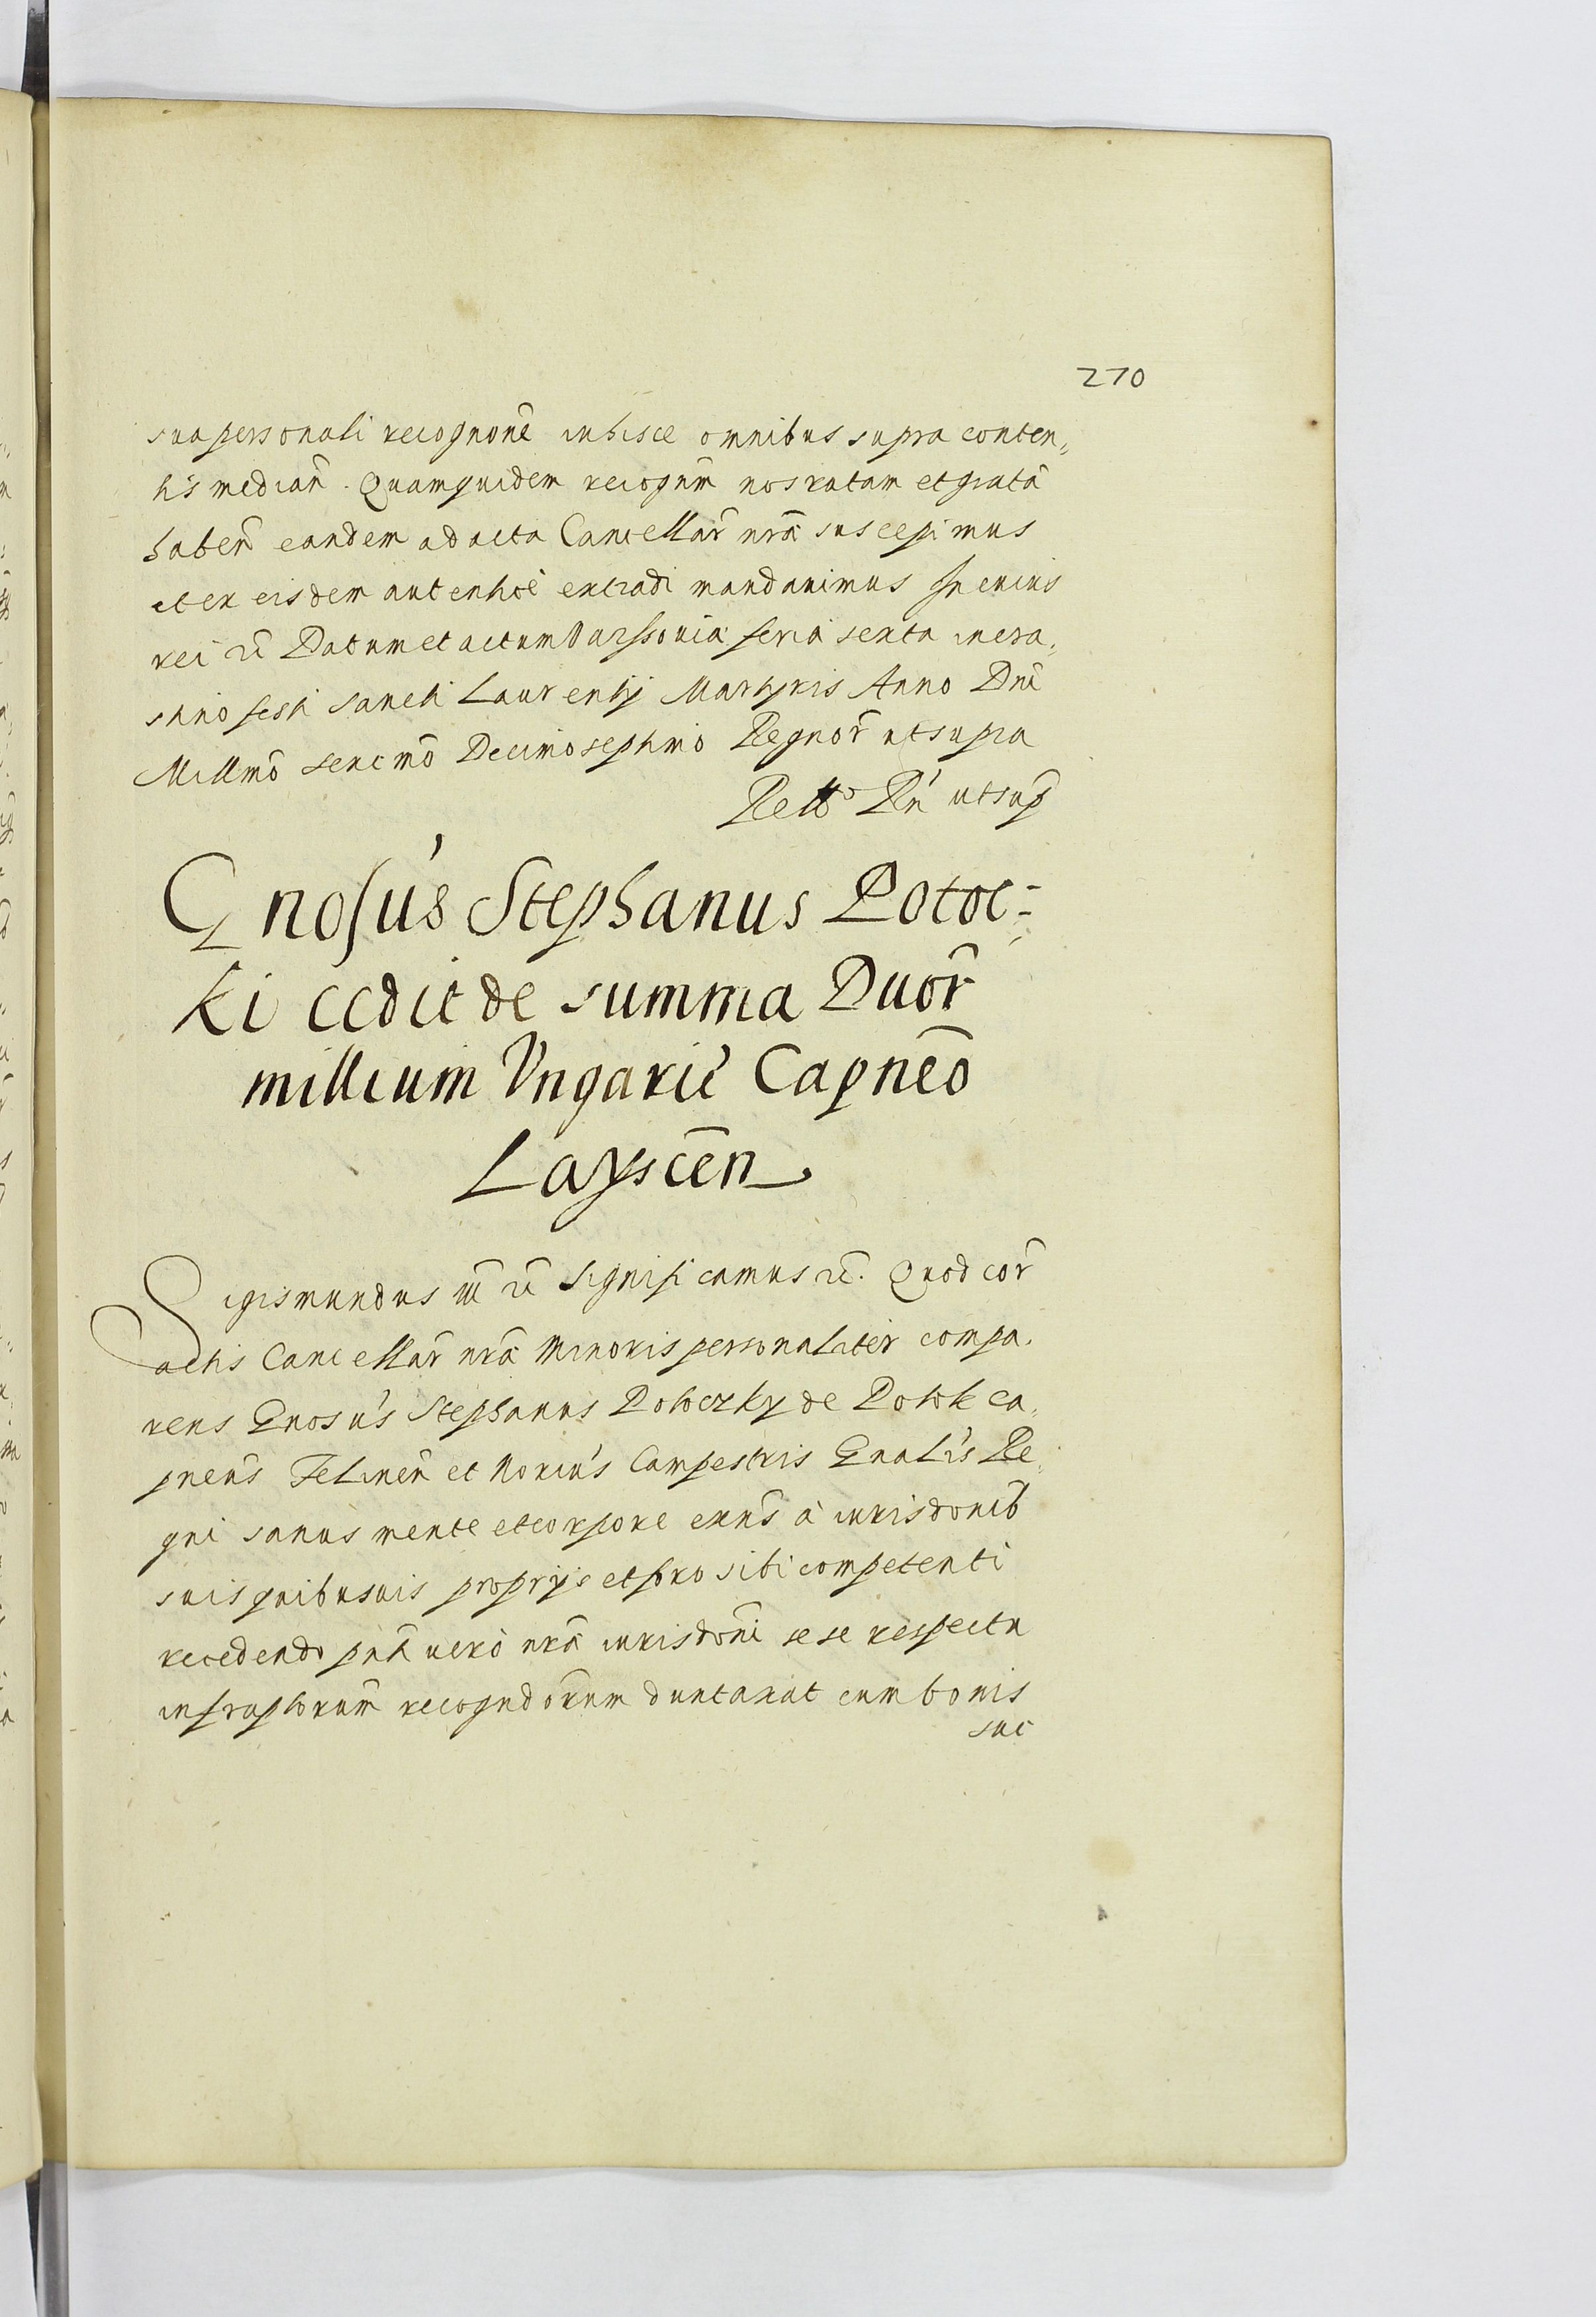 270
sua personali recognõne in hisce omnibus supra conten„
tis median̄. Quamquidem recognm̄ nos ratam et gratã
haben̄ eandem ad acta Cancellar̃ nrã suscepimus
et ex eisdem autenticè extradi mandavimus In cuius
rei rc̃ Datum et actum Varssovia feria sexta in cra„
stino festi Sancti Laurentij Martyris Anno Dnĩ
Millmõ sexcmõ Decimo septimo Regnor̃ ut supra
Retto Rn̄ ut sup̃
Gnosus Stephanus Potoc-
ki cedit de summa Duor̃
millium Ungaric̃ Capneõ
Layscẽn
Sigismundus iii rc̃ Significamus rc̃. Quod cor̃
actis Cancellar̃ nrã Minoris personaliter compa„
rens Gnosus Stephanus Potoczky de Potok ca„
pneus Felinen̄ et Notarius Campestris Gnalis Re„
gni sanus mente et corpore exns à iurisdonib̃
suis quibusuis proprijs et foro sibi competenti
recedendo pnti uerò nrã iurisdoni sese respectu
infraptorum recogndorum duntaxat cum bonis
suc